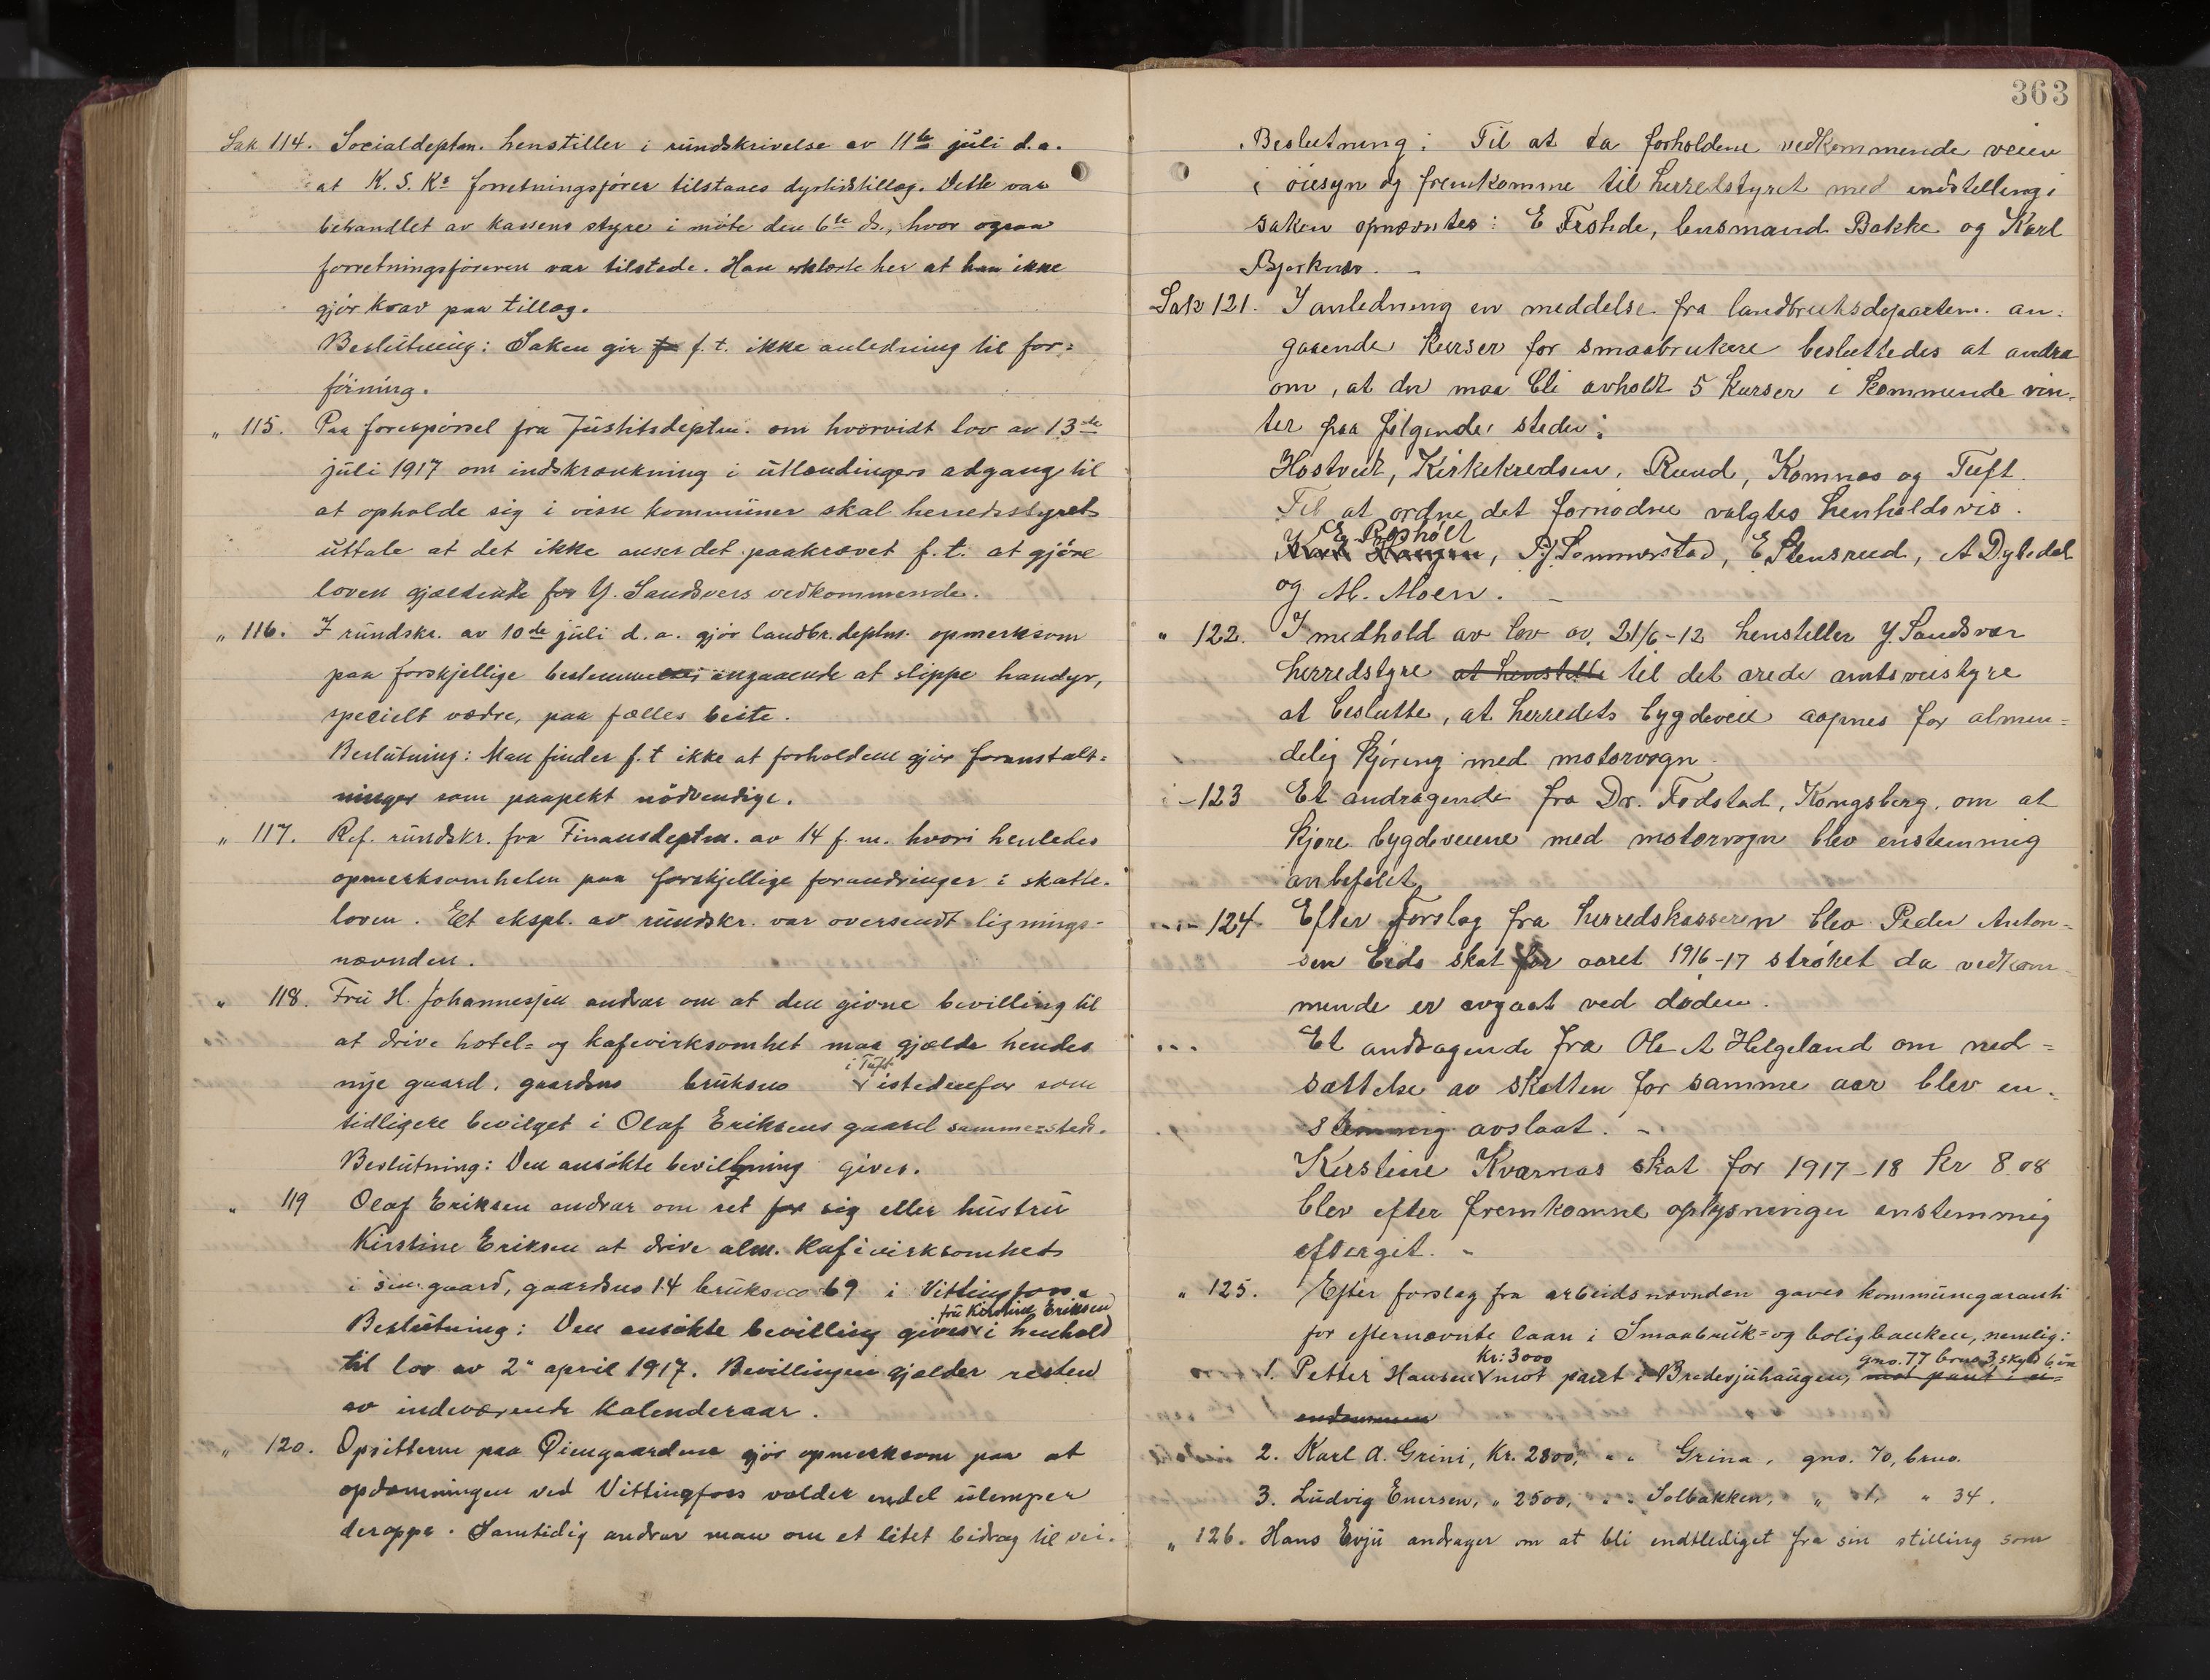 Sak 114. Socialdeptm. henstiller i rundskrivelse av 11te juli d.a.
at K. S. Ks forretningsfører tilstaaes dyrtidstillæg. Dette var
behandlet av kassens styre i møte den 6te ds., hvor ogsaa
forretningsføreren var tilstede. Han erklærte her at han ikke
gjør krav paa tillæg.
Beslutning: Saken gir f. t. ikke anledning til for=
føining.
" 115. Paa forespørsel fra Justitsdeptm. om hvorvidt lov av 13de
juli 1917 om indskrænkning i utlændingers adgang til
at opholde sig i visse kommuner skal herredsstyret
uttale at det ikke anser det paakrævet f. t. at gjøre
loven gjældende for Y. Sandsvers vedkommende.
" 116. I rundskr. av 10de juli d. a. gjør landbr.deptm. opmerksom
paa forskjellige bestemmelser angaaende at slippe handyr,
specielt vædre, paa fælles beite.
Beslutning: Man finder f. t ikke at forholdene gjør foranstalt=
ninger som paapekt nödvendige.
" 117. Ref. rundskr. fra Finansdeptm. av 14 f. m. hvori henledes
opmerksomheten paa forskjellige forandringer i skatte-
loven. Et ekspl. av rundskr. var oversendt lignings-
nævnden.
" 118. Fru H. Johannessen andrar om at den givne bevilling til
at drive hotel= og kafevirksomhet maa gjælde hendes
nye gaard, gaardsno bruksno i Tuft istedenfor som
tidligere bevilget i Olaf Eriksens gaard sammesteds.
Beslutning: Den ansökte bevillgning gives.
" 119 Olaf Eriksen andrar om ret for sig eller hustru
Kirstine Eriksen at drive alm. Kafévirksomhet
i sin gaard, gaardsno 14 bruksno 69 i Vittingfoss.
fru Kirstine Eriksen
Beslutning: Den ansökte bevilling gives i henhold
til lov av 2" april 1917. Bevillingen gjælder resten
av indeværende Kalenderaar.
" 120. Opsitterne paa Öiengaardene gjör opmerksom paa at
opdæmningen ved Vittingfoss volder endel ulemper
deroppe. Samtidig andrar man om et litet bidrag til vei.
363
Beslutning: Til at ta forholdene vedkommende veien
i öiesyn og fremkomme til herredstyret med indstilling i
saken opnævntes: E Frohde, lensmand Bakke og Karl
Bjerknes. -
Sak 121. I anledning en meddelse fra landbruksdepartem. an:
gaaende Kurser for smaabrukere besluttedes at andra
om, at der maa bli avholdt 5 kurser i kommende vin-
ter paa følgende steder:
Hostvedt, Kirkekredsen, Ruud, Komnæs og Tuft.
Til at ordne det fornødne valgtes henholdsvis.
, P.J. Sommerstad, E Stensrud, A Dybedal
og M. Moen. -
" 122. I medhold av lov av 21/6-12 henstiller Y. Sandsvær
herredstyre at henstille til det ærede amtsveistyre
at beslutte, at herredets bygdeveie aapnes for almin=
delig kjøring med motorvogn
-123 Et andragende fra Dr. Fodstad, Kongsberg, om at
kjøre bygdeveiene med motorvogn blev enstemmig
anbefalet
124 Efter Forslag fra herredskasseren blev Peder Anton=
sen Eids skat for aaret 1916-17 strøket da vedkom-
mende er avgaat ved døden.
Et andragende fra Ole A Helgeland om ned=
sættelse av skatten for samme aar blev en-
stemmig avslaat. -
Kirstine Kværnas skat for 1917-18 kr 8.08
blev efter fremkomne oplysninger enstemmig
eftergit. -
" 125. Efter forslag fra arbeidsnævnden gaves kommunegaranti
for efternævnte laan i Smaabruk= og boligbanken, nemlig:
Kr: 3000 gno. 77 brno 3, skyld 6 øre
1. Petter Hansen mot pant i Bredesjuhaugen, mot pant i ei=
endommen
2. Karl A. Grini, Kr. 2800, " " Grina, gno. 70, brno.
3. Ludvig Enersen, " 2500, " " Solbakken, " 1, " 34.
" 126. Hans Evju andrager om at bli endtlediget fra sin stilling som